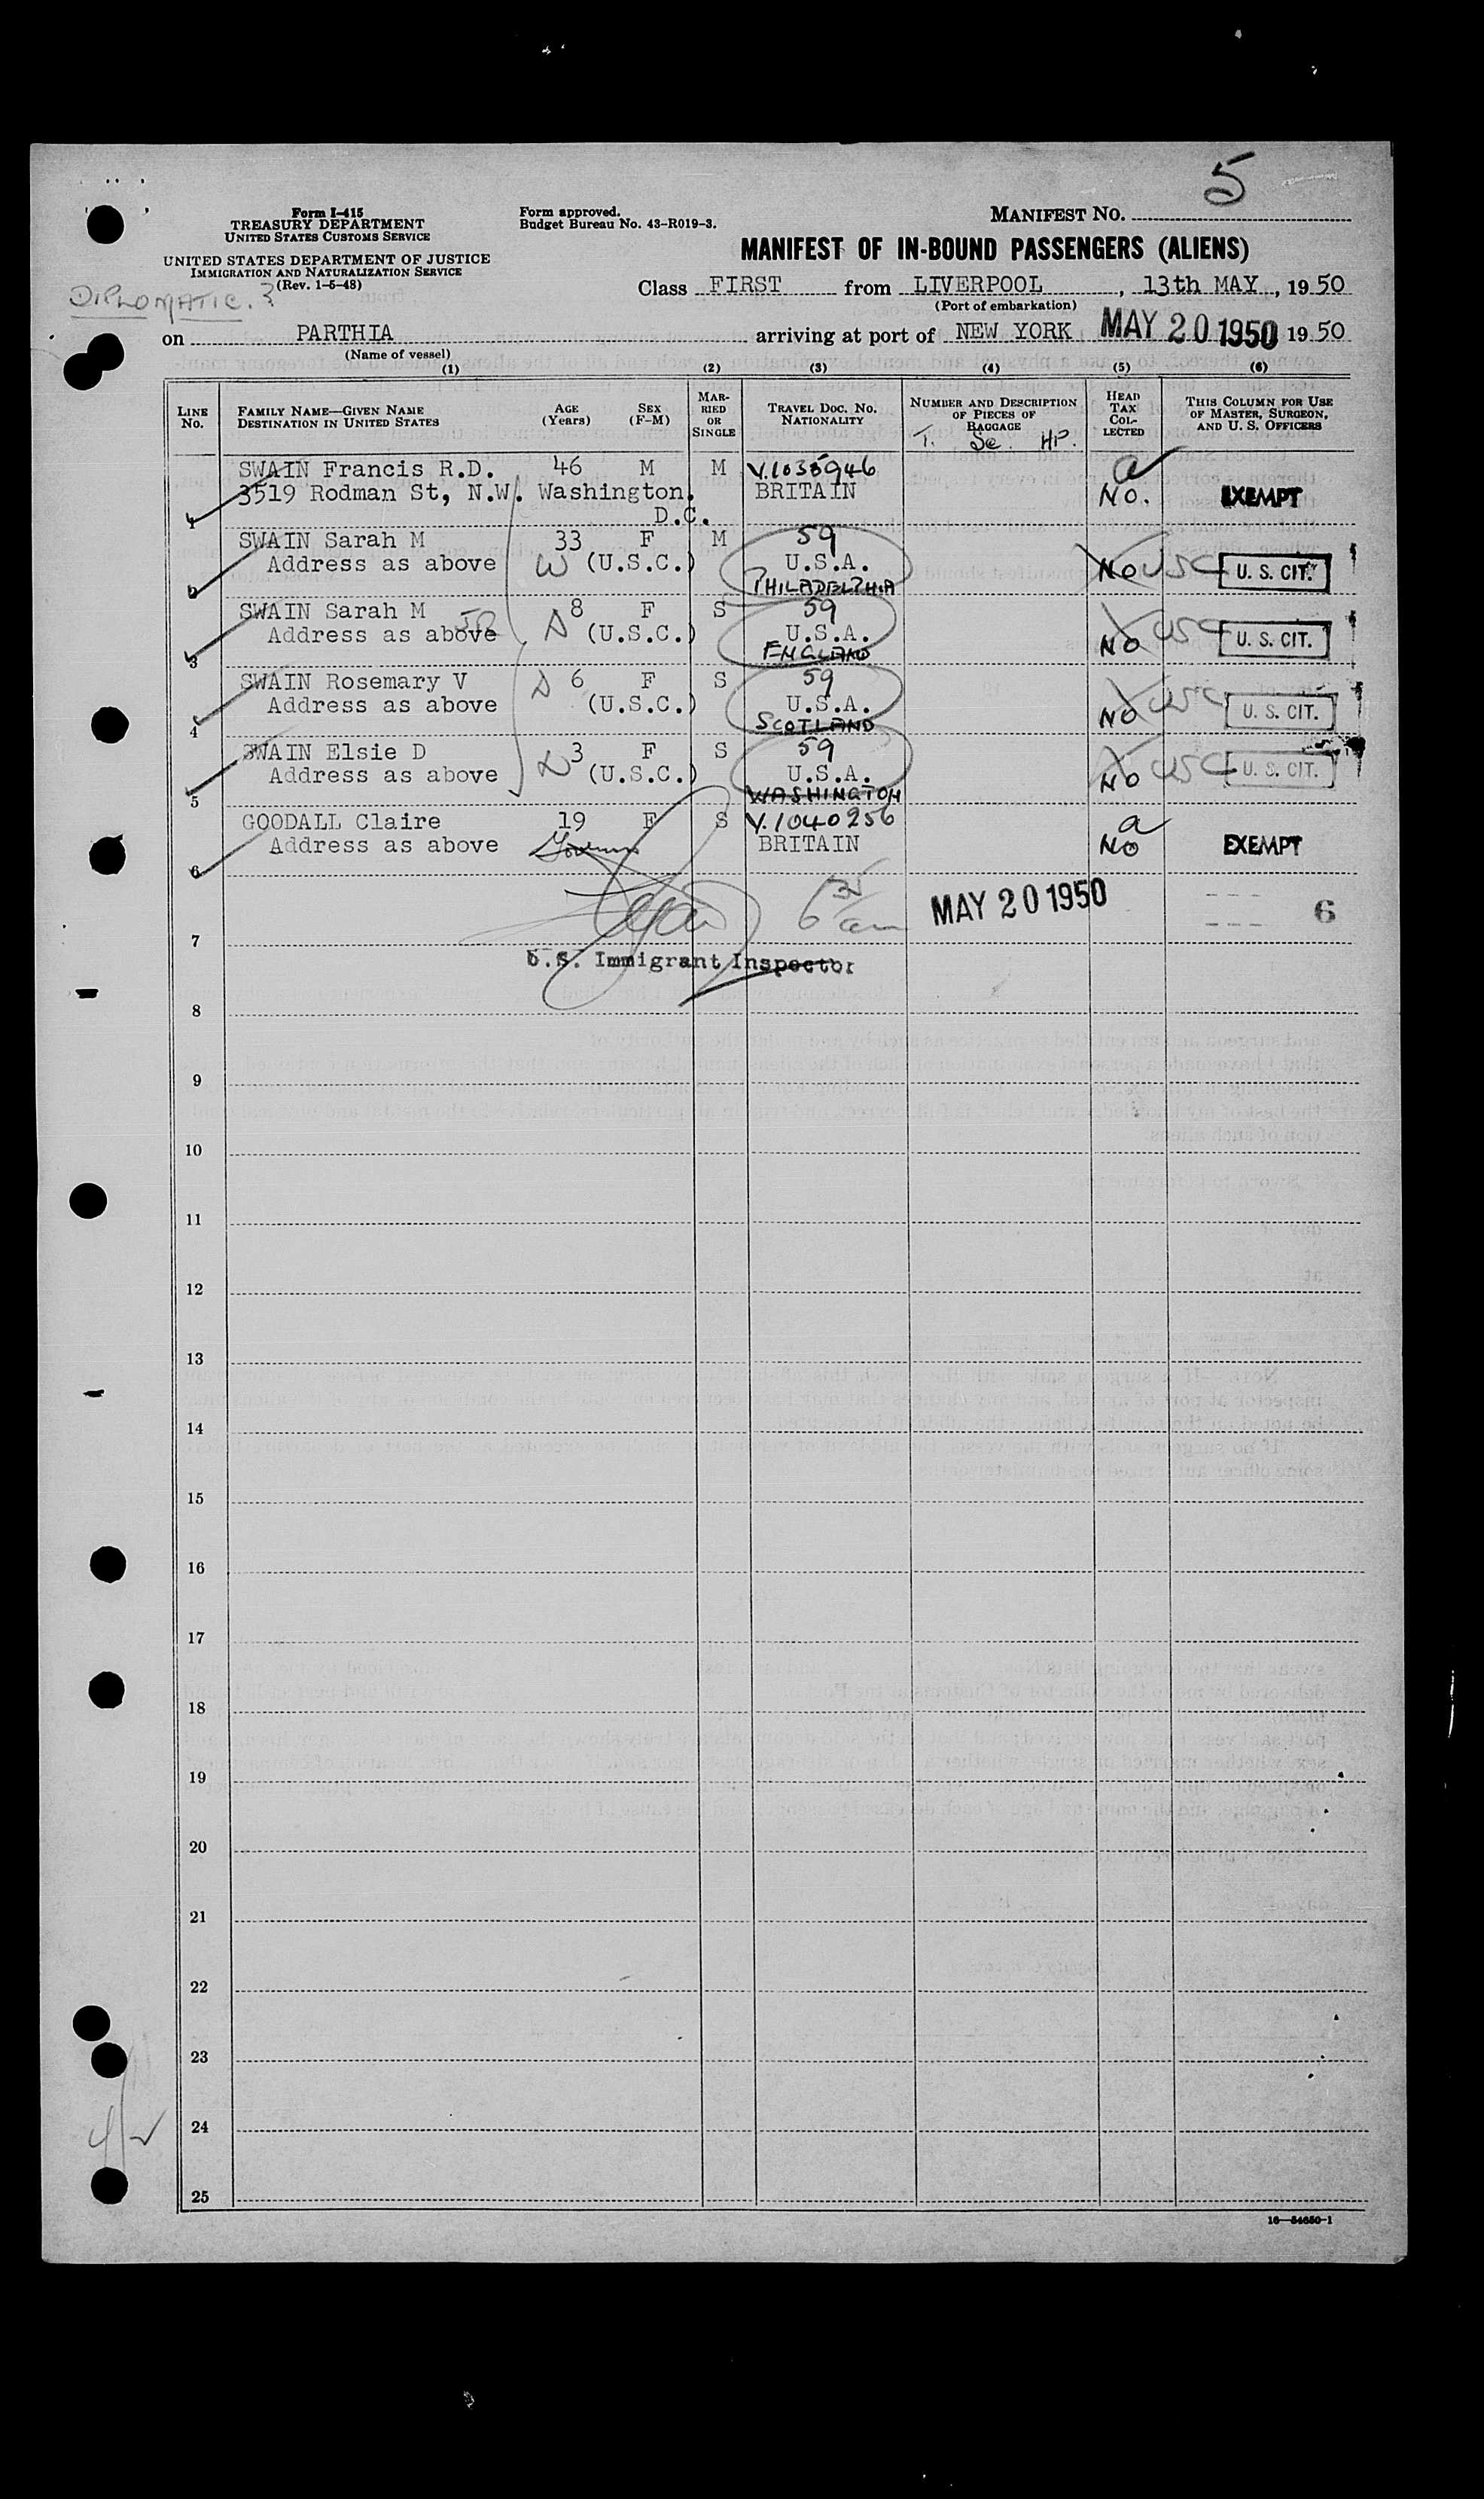 5
Form I-415
TREASURY DEPARTMENT
UNITED STATES CUSTOMS SERVICE
UNITED STATES DEPARTMENT OF JUSTICE
IMMIGRATION AND NATURALIZATION SERVICE
(Rev. 1-5-48)
DIPLOMATIC. 3
Form approved.
Budget Bureau No. 43-R019-3.
MANIFEST NO.
MANIFEST OF IN-BOUND PASSENGERS (ALIENS)
Class FIRST from LIVERPOOL, 13th MAY, 1950
(Port of embarkation)
on PARTHIA arriving at port of NEW YORK MAY 20 1950 1950
(Name of vessel)
(1) (2) (3) (4) (5) (6)
LINE No. FAMILY NAME—GIVEN NAME DESTINATION IN UNITED STATES AGE (Years) SEX (F-M) MARRIED OR SINGLE TRAVEL DOC. NO. NATIONALITY NUMBER AND DESCRIPTION OF PIECES OF BAGGAGE HEAD TAX COLLECTED THIS COLUMN FOR USE OF MASTER, SURGEON, AND U. S. OFFICERS
T. Se. HP.
SWAIN Francis R.D. 46 M M V.1035946
1 3519 Rodman St, N.W. Washington. BRITAIN No. EXEMPT
D.C.
SWAIN Sarah M 33 F M 59
2 Address as above W (U.S.C.) U.S.A. No USC U. S. CIT.
PHILADELPHIA
SWAIN Sarah M JR 8 F S 59
3 Address as above D (U.S.C.) U.S.A. No USC U. S. CIT.
ENGLAND
SWAIN Rosemary V 6 F S 59
4 Address as above D (U.S.C.) U.S.A. No USC U. S. CIT.
SCOTLAND
SWAIN Elsie D 3 F S 59
5 Address as above D (U.S.C.) U.S.A. No USC U. S. CIT.
WASHINGTON
GOODALL Claire 19 F S V.1040256
6 Address as above BRITAIN No EXEMPT
7 MAY 20 1950 6
U.S. Immigrant Inspector
8
9
10
11
12
13
14
15
16
17
18
19
20
21
22
23
24
25
16—54650-1